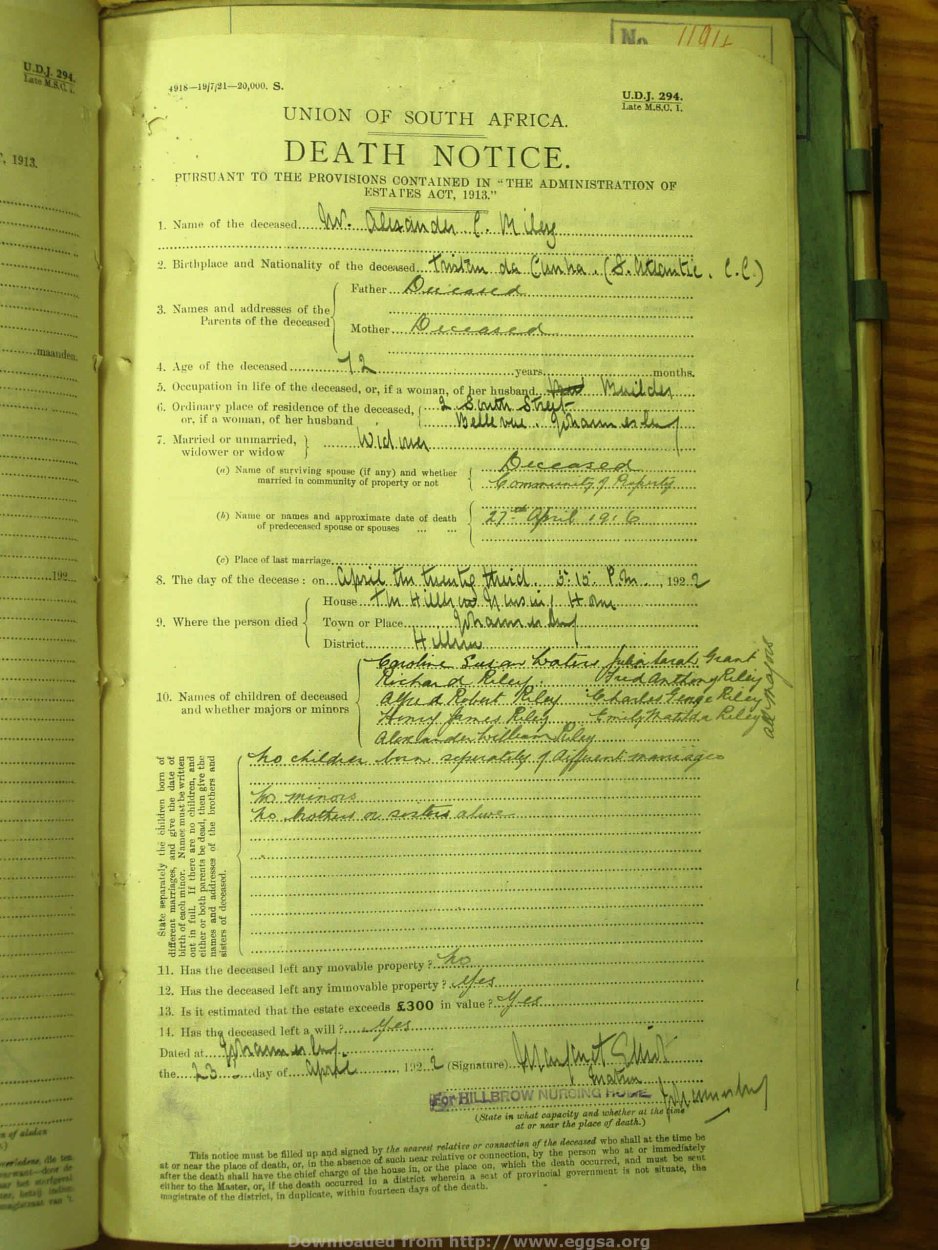 U.D.J. 294.
Late M.S.C. 1.
, 1913.
maanden.
192
No 11911
4918—19/7/21—20,000. S.
U.D.J. 294.
Late M.S.C. 1.
UNION OF SOUTH AFRICA.
DEATH NOTICE.
PURSUANT TO THE PROVISIONS CONTAINED IN "THE ADMINISTRATION OF
ESTATES ACT, 1913."
1. Name of the deceased Mr. Alexander F. Riley
2. Birthplace and Nationality of the deceased Tristan da Cunha. (S. Atlantic. C.C.)
Father Deceased
3. Names and addresses of the
Parents of the deceased
Mother Deceased
4. Age of the deceased 72 years months.
5. Occupation in life of the deceased, or, if a woman, of her husband Builder
6. Ordinary place of residence of the deceased, 2 South Street
or, if a woman, of her husband Bellevue. Johannesburg
7. Married or unmarried, widower or widow Widower
(a) Name of surviving spouse (if any) and whether Deceased
married in community of property or not Community of Property
(b) Name or names and approximate date of death 27th April 1916
of predeceased spouse or spouses ... ...
(c) Place of last marriage
8. The day of the decease: on April the twenty third. 5.15 P.M., 1922
House The Hillbrow Nursing Home
9. Where the person died Town or Place Johannesburg
District Hillbrow
Caroline Susan Waters Julia Sarah Grant
Richard Riley Fred Anthony Riley
10. Names of children of deceased Alfred Robert Riley Charles George Riley
and whether majors or minors Henry James Riley Emily Matilda Riley
Alexander William Riley
all majors
State separately the children born of
different marriages, and give the date of
birth of each minor. Names must be written
out in full. If there are no children, and
either or both parents be dead, then give the
names and addresses of the brothers and
sisters of deceased.
No children born seperately of different marriages
No minors
No brothers or sisters alive
11. Has the deceased left any movable property? No
12. Has the deceased left any immovable property? Yes
13. Is it estimated that the estate exceeds £300 in value? Yes
14. Has the deceased left a will? Yes
Dated at Johannesburg
the 23 day of April, 1922 (Signature) Margaret
Matron
For HILLBROW NURSING HOME Johannesburg
(State in what capacity and whether at the time
at or near the place of death.)
This notice must be filled up and signed by the nearest relative or connection of the deceased who shall at the time be
at or near the place of death, or, in the absence of such near relative or connection, by the person who at or immediately
after the death shall have the chief charge of the house in, or the place on, which the death occurred, and must be sent
either to the Master, or, if the death occurred in a district wherein a seat of provincial government is not situate, the
magistrate of the district, in duplicate, within fourteen days of the death.
Downloaded from http://www.eggsa.org